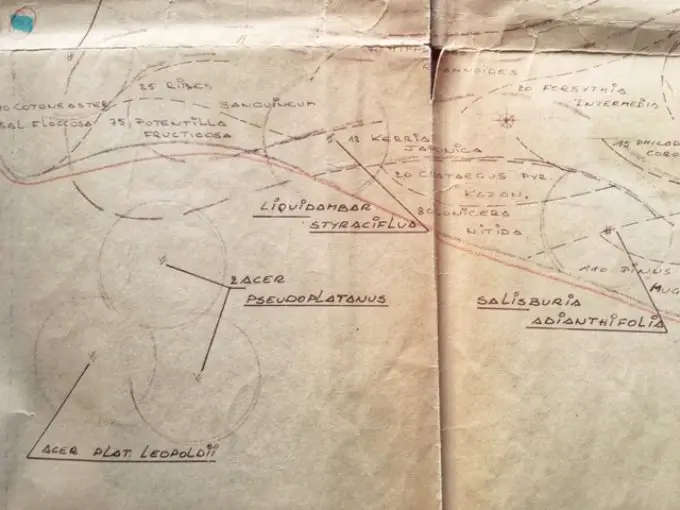 25 RIBES
SANGUINEUM
SAL FLOCCOSA
75 POTENTILLA
FRUCTICOSA
20 FORSYTHIA
INTERMEDIA
12 KERRIA
JAPONICA
20 CRATAEGUS PYR.
KAZAN.
80 LONICERA
NITIDA
LIQUIDAMBAR
STYRACIFLUA
2 ACER
PSEUDOPLATANUS
110 PINUS
MUG
SALISBURIA
ADIANTHIFOLIA
ACER PLAT. LEOPOLDII